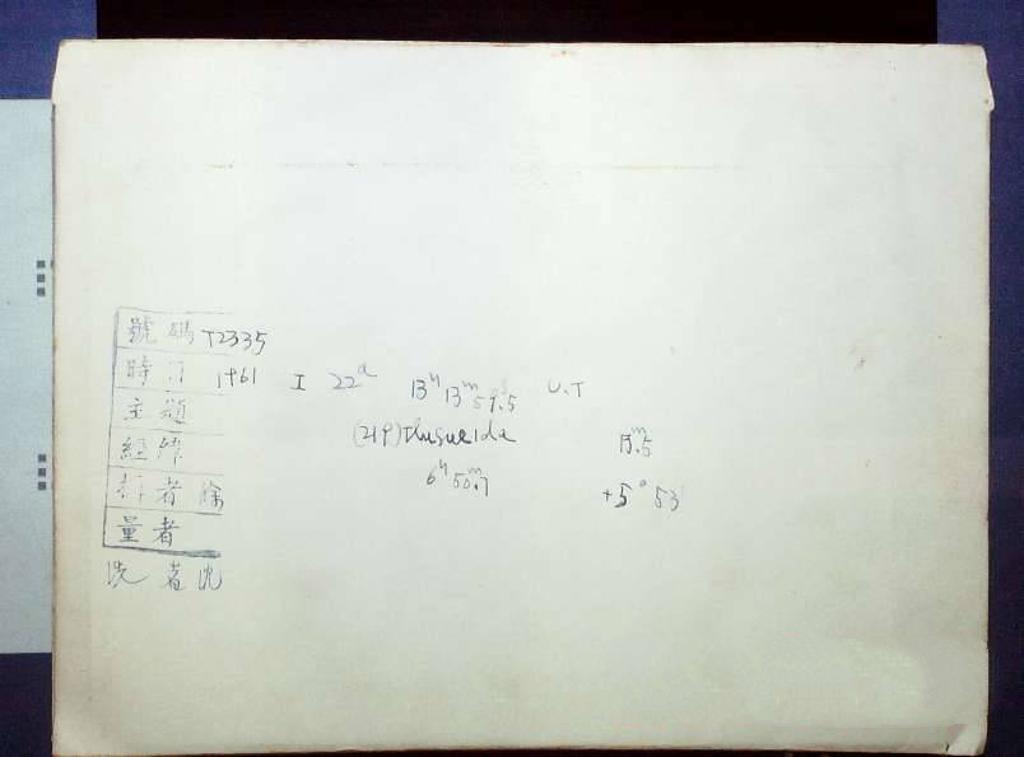 號碼 T2335
時間 1961 I 22ᵈ 13ʰ13ᵐ59ˢ.5 U.T
主題 (219)Thusnelda 13ᵐ.5
經緯 6ʰ50ᵐ.7 +5°53
者 徐
量者
洗者 沈